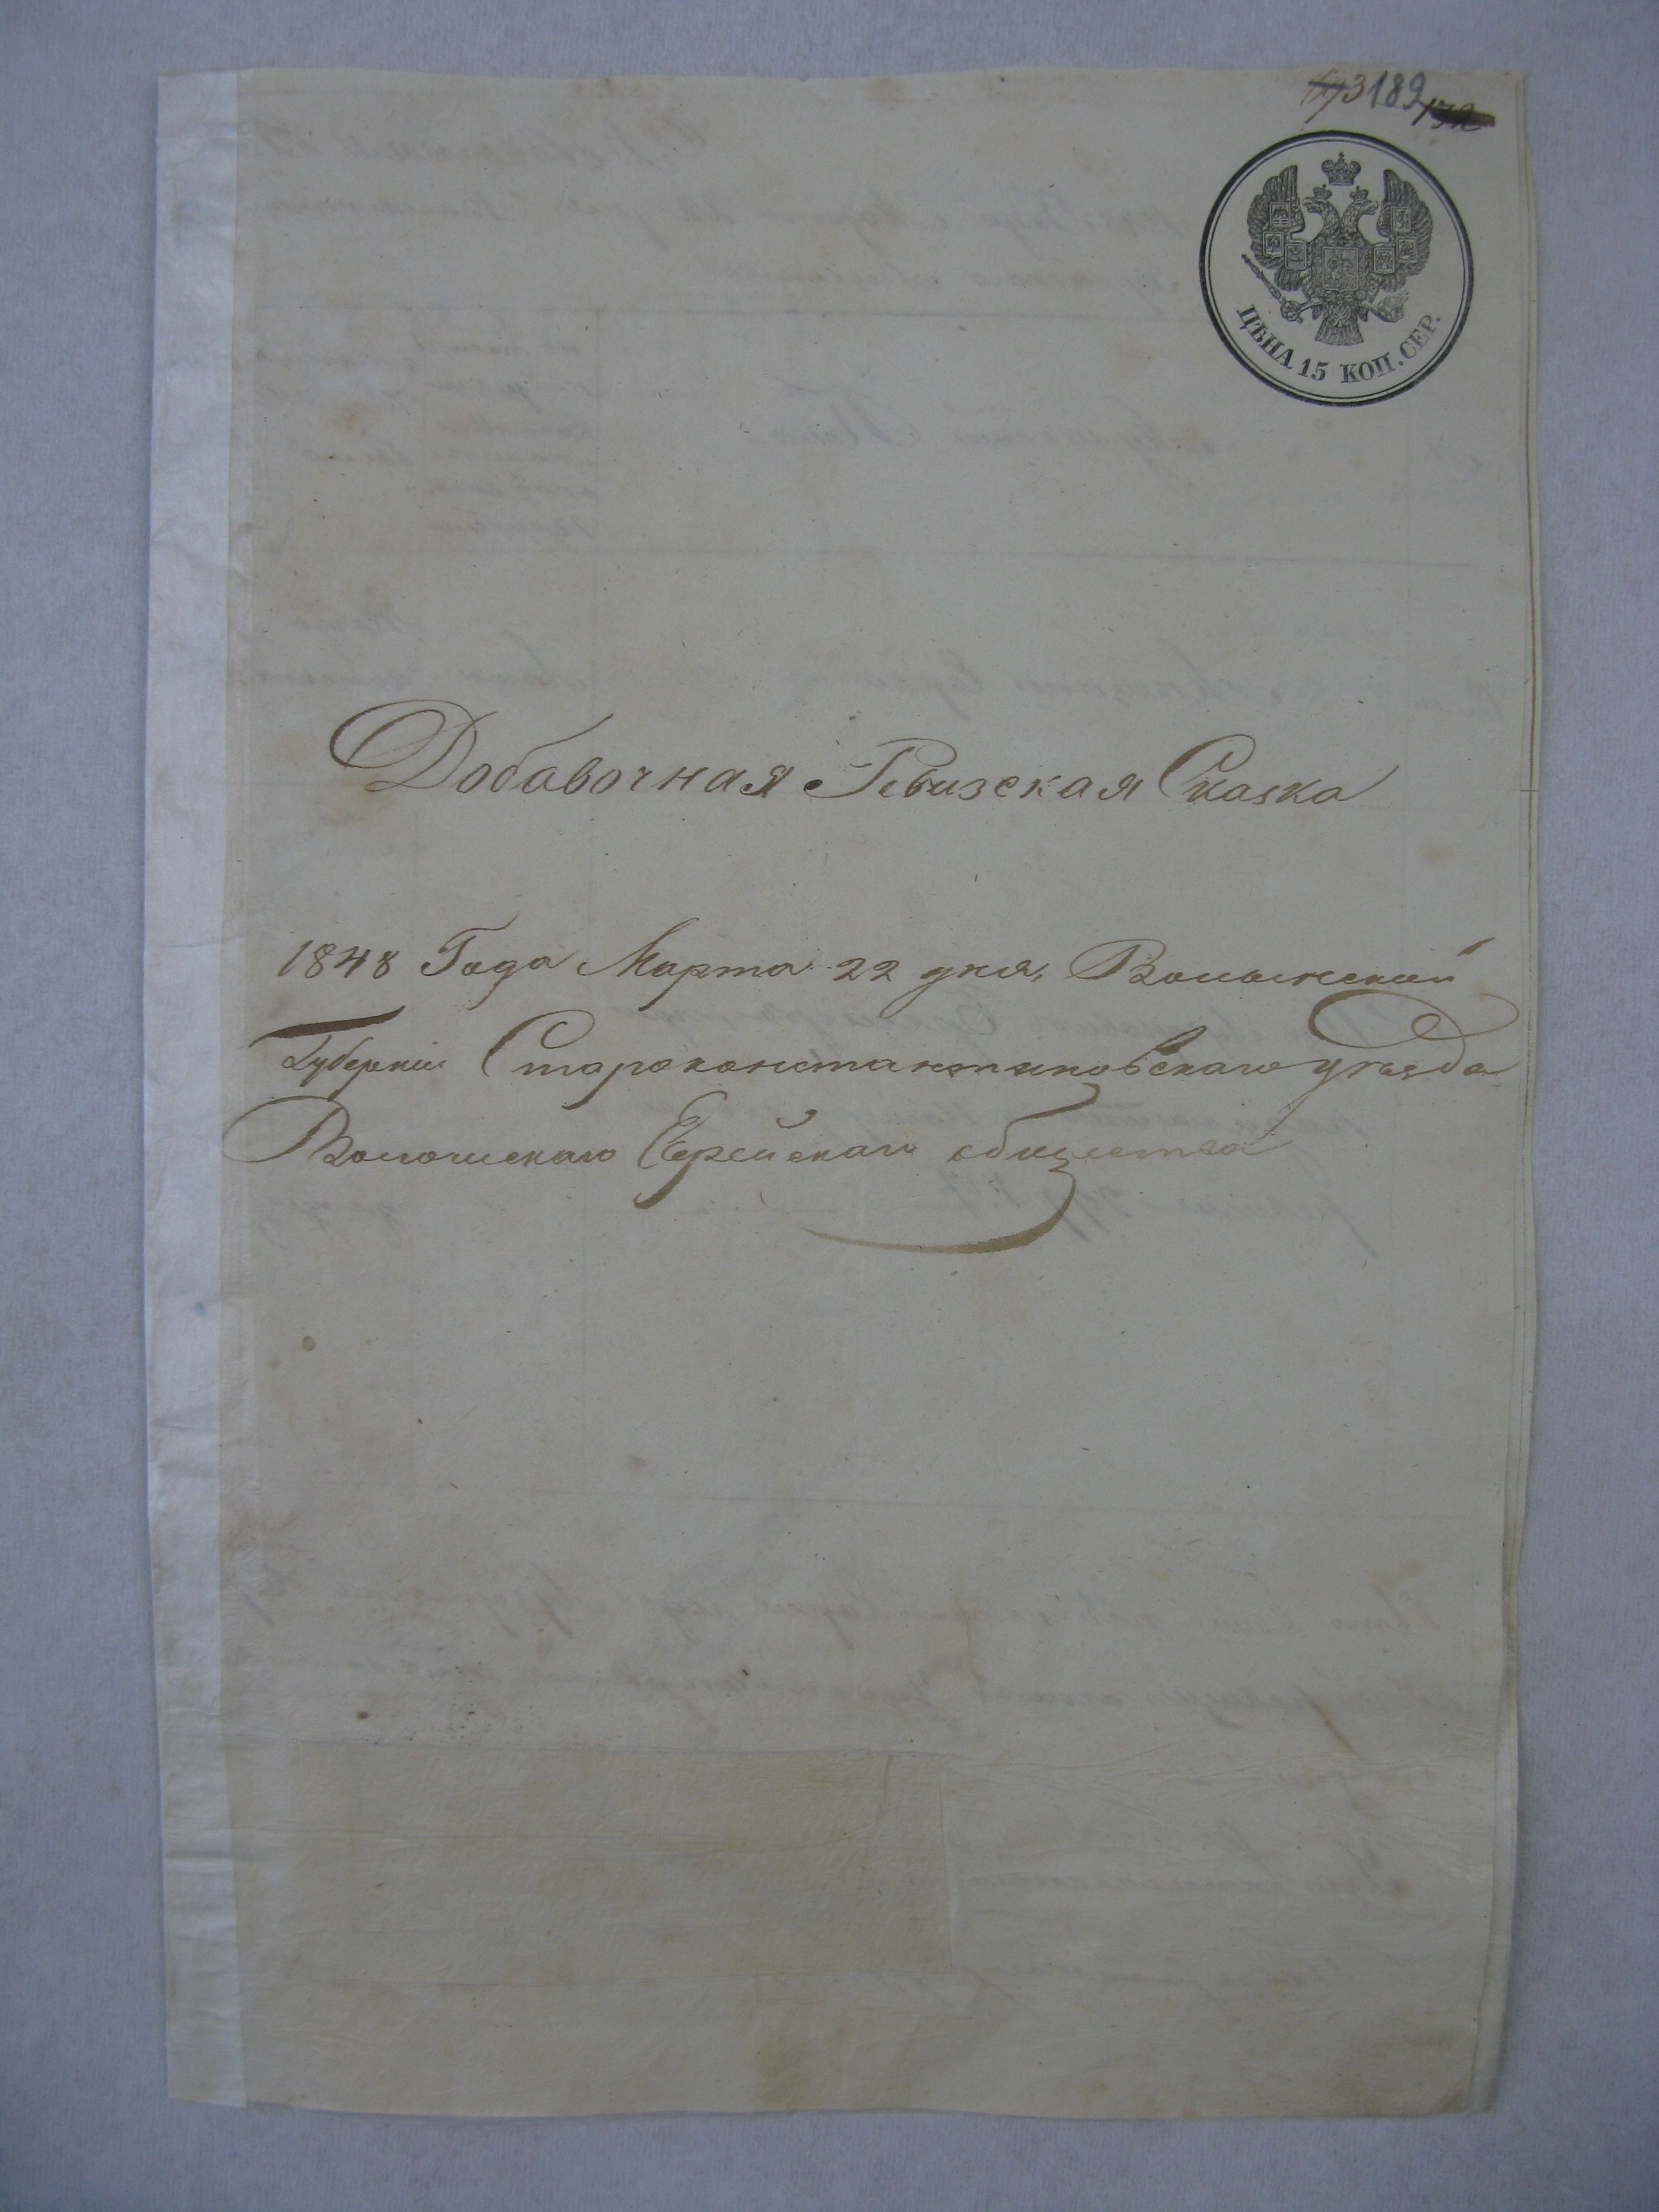 189
ЦѢНА 15 КОП. СЕР.
Добавочная Ревизская Сказка
1848 Года Марта 22 дня, Волынской
Губерніи Староконстантиновскаго уѣзда
Волочискаго Еврейскаго общества